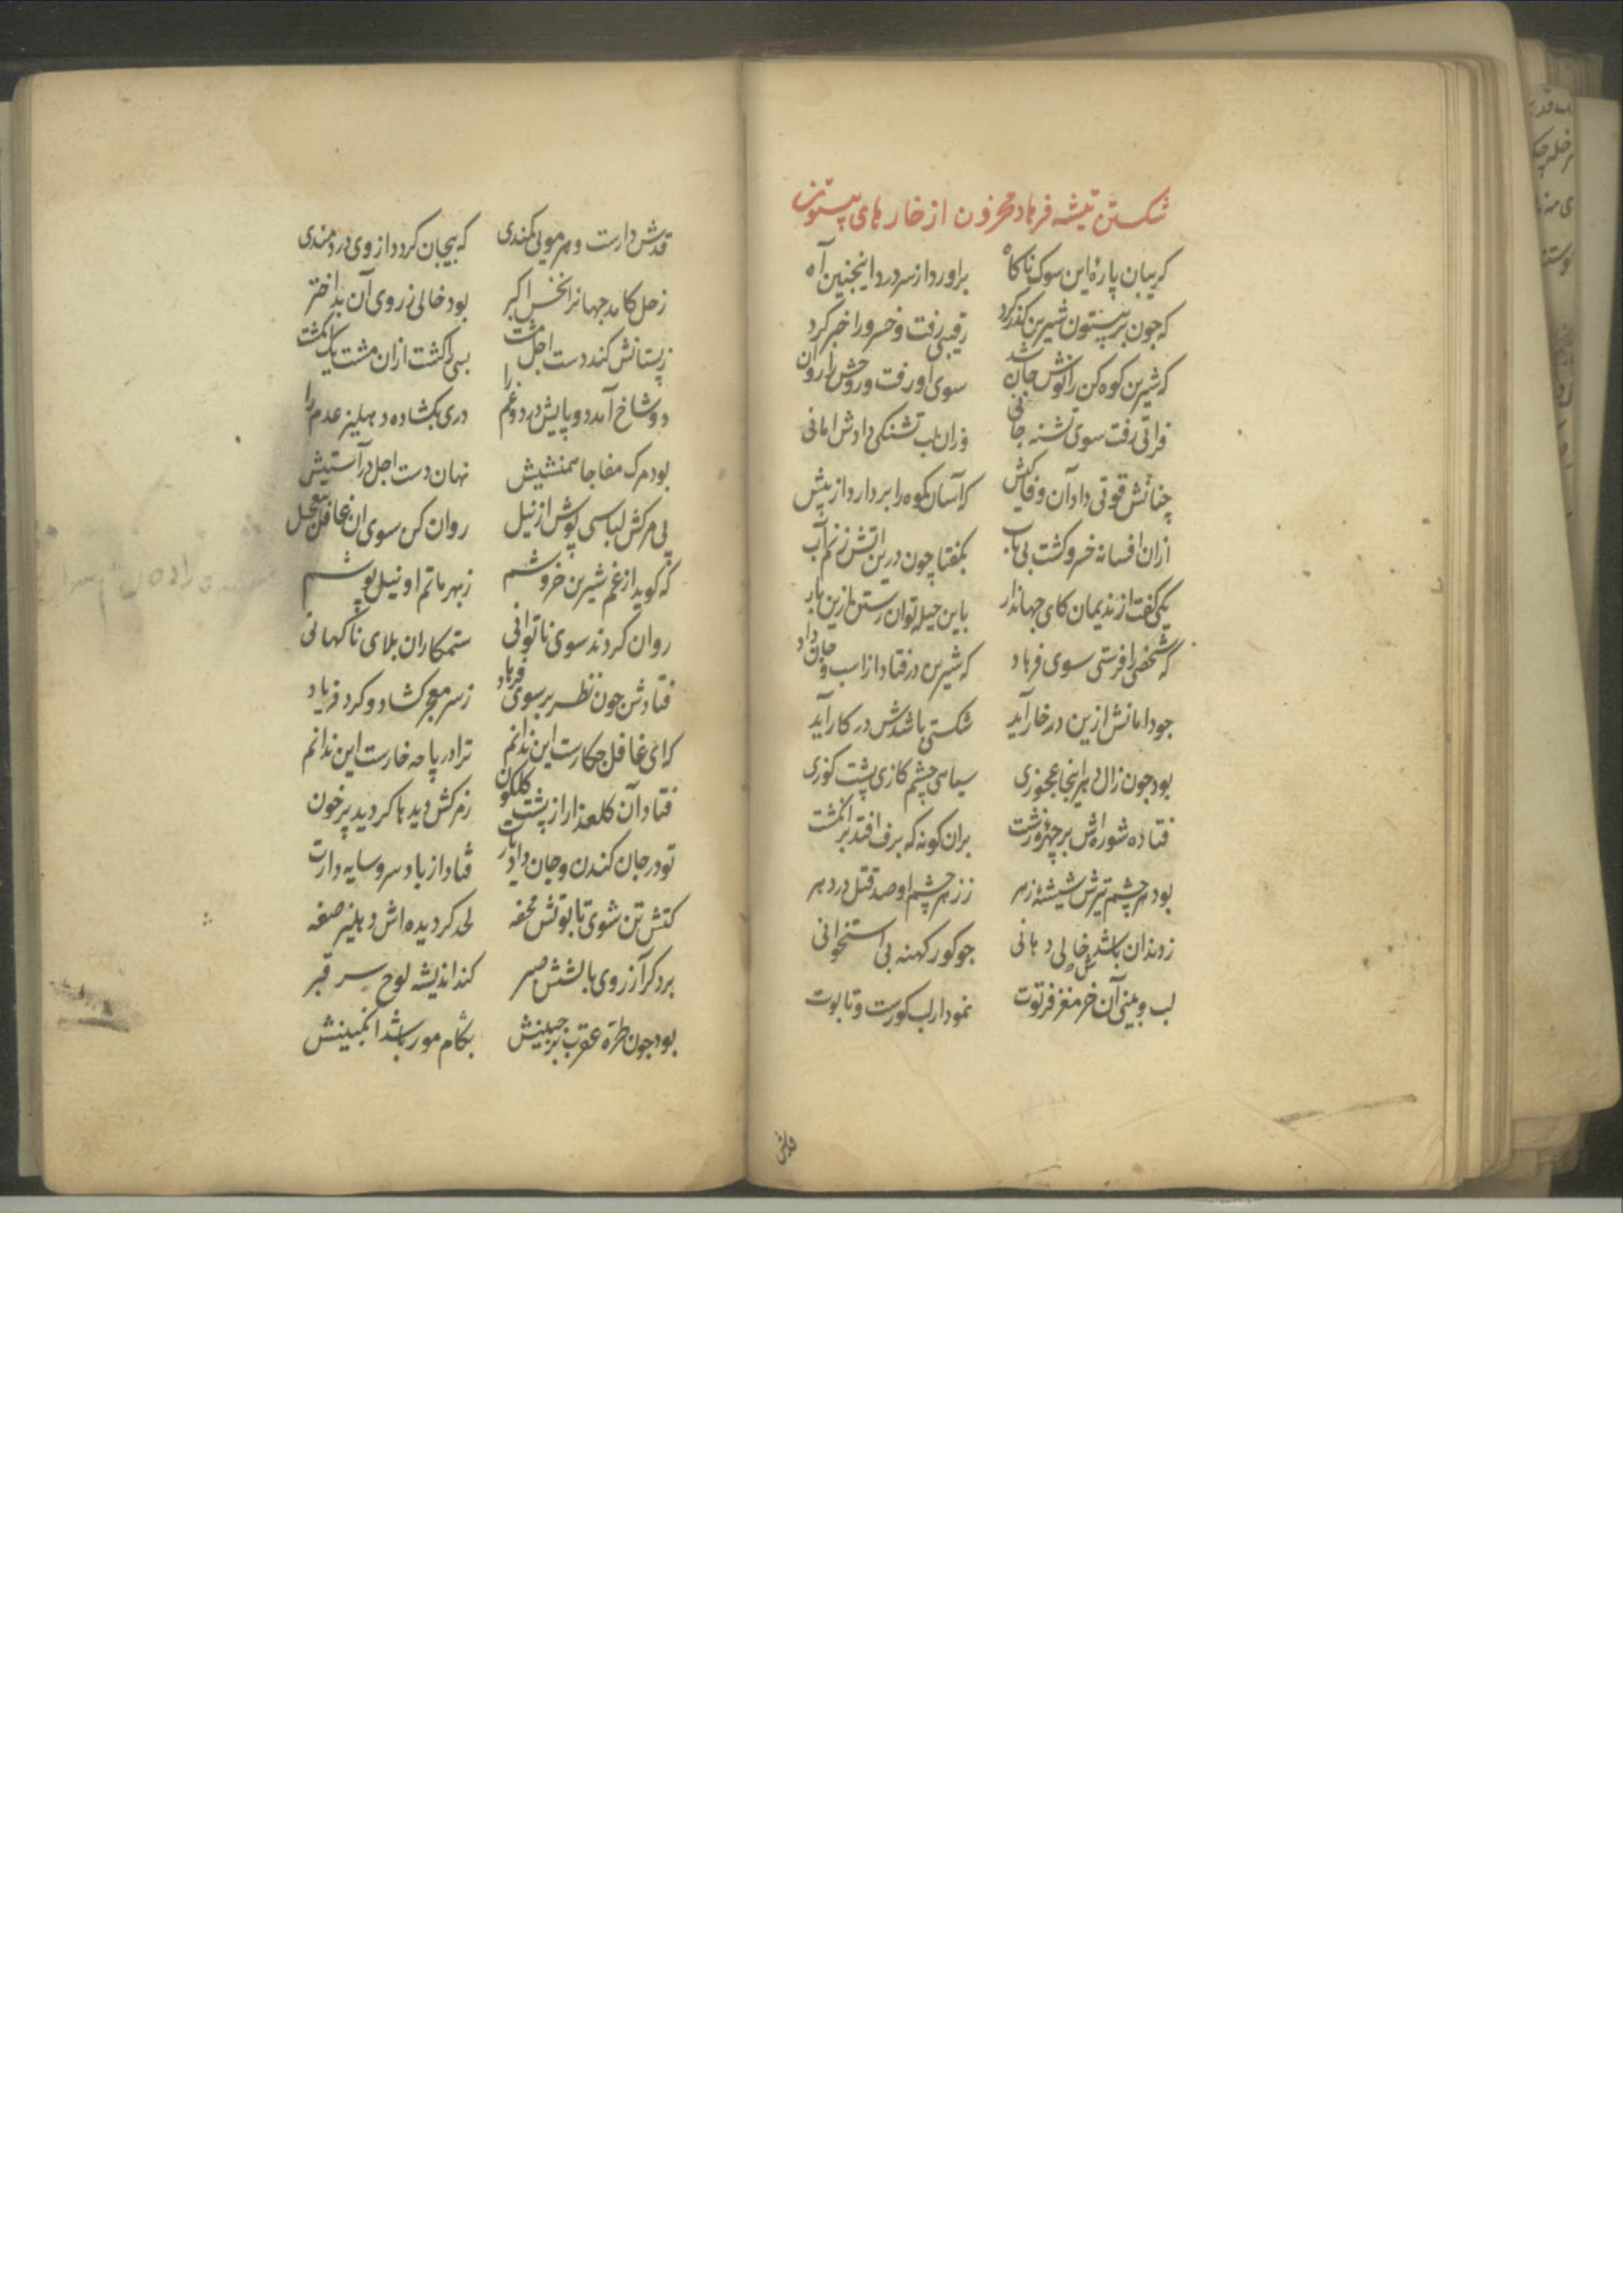 شکستن تیشه فرهاد محزون از خارهای بیستون
کریبان پارهٔ این سوک ناکاه براورد از سر درد اینجنین آه
که جون بر بیستون شیرین کذر کرد رقیبی رفت و خسرو را خبر کرد
که شیرین کوه کن را نوش جان شد سوی او رفت و روحش را روان شد
فراتی رفت سوی تشنه جانی وزان لب تشنکی دادش امانی
چنانش قوتی داد آن وفاکیش که آسان کوه را بردارد از پیش
ازان افسانه خسرو کشت بی تاب بکفتا چون درین اتش زنم آب
یکی کفت از ندیمان کای جهاندار باین حیله توان رستن ازین بار
که شخصی را فرستی سوی فرهاد که شیرین درفتاد از اسب و جان داد
جو دامانش ازین در خار آید شکستی باشدش در کار آید
بود جون زال دهر اینجا عجوزی سیاهی چشم کازی پشت کوزی
فتاده شوره اش بر چهره زشت بران کونه که برف افتد بر انکشت
بود هر چشم تیرش شیشه زهر ز زهر چشم او صد قتل در دهر
ز دندان باشدش خالی دهانی جو کور کهنه بی استخوانی
لب و بینی آن خر مغز فرتوت نمودار لب کورست و تابوت
قدش
قدش دارست و هر مویی کمندی که بیجان کردد از وی دردمندی
زحل کامد جهانرا نخس اکبر بود خالی ز روی آن بد اختر
ز پستانش کند دست اجل مشت بسی را کشت ازان مشت یک انکشت
دو شاخ آمد دو پایش درد و غم را دری بکشاده دهلیز عدم را
بود مرک مفاجا همنشینش نهان دست اجل در آستینش
پی مرکش لباسی پوش از نیل روان کن سوی ان غافل بتعجیل
که کوید از غم شیرین خروشم ز بهر ماتم او نیل پوشم
روان کردند سوی ناتوانی ستمکاران بلای ناکهانی
فتادش جون نظر بر سوی فرهاد ز سر معجر کشاد و کرد فریاد
که ای غافل جکارست این ندانم ترا در پا جه خارست این ندانم
فتاد آن کلعذار از پشت کلکون ز مرکش دیدها کردید پر خون
تو در جان کندن و جان داد یارت فتاد از باد سرو سایه دارت
کتش تن شوی تابوتش محفه لحد کردیده اش دهلیز صفه
برد کر آرزوی بالشش صبر کند اندیشه لوح سر قبر
بود جون طره عقرب بر جبینش بکام مور باشد انکبینش